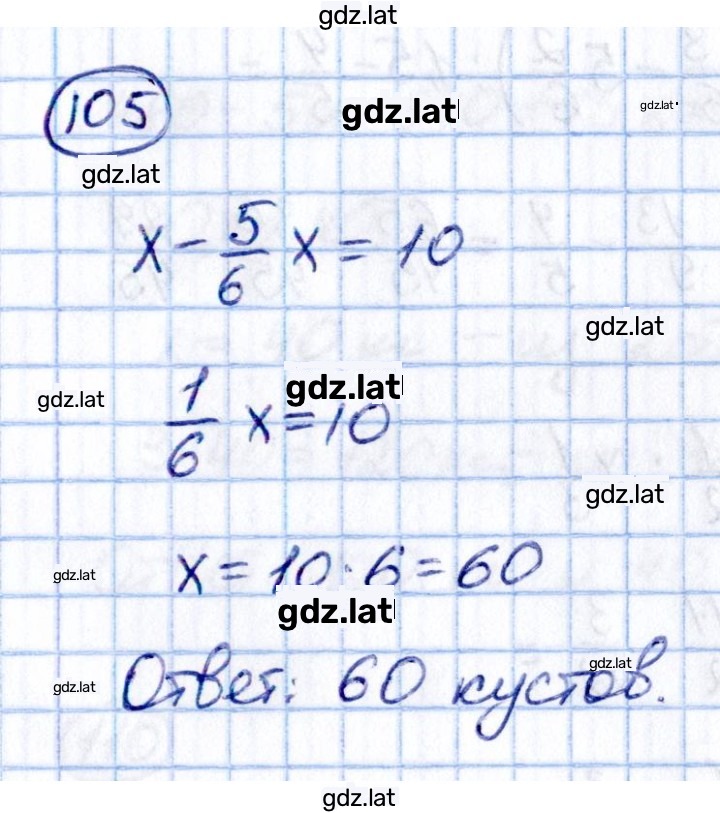 gdz.lat
105
gdz.lat
gdz.lat
gdz.lat
x - 5/6 x = 10
gdz.lat
gdz.lat
gdz.lat
1/6 x = 10
gdz.lat
x = 10 · 6 = 60
gdz.lat
gdz.lat
gdz.lat
gdz.lat
Ответ: 60 кустов.
gdz.lat